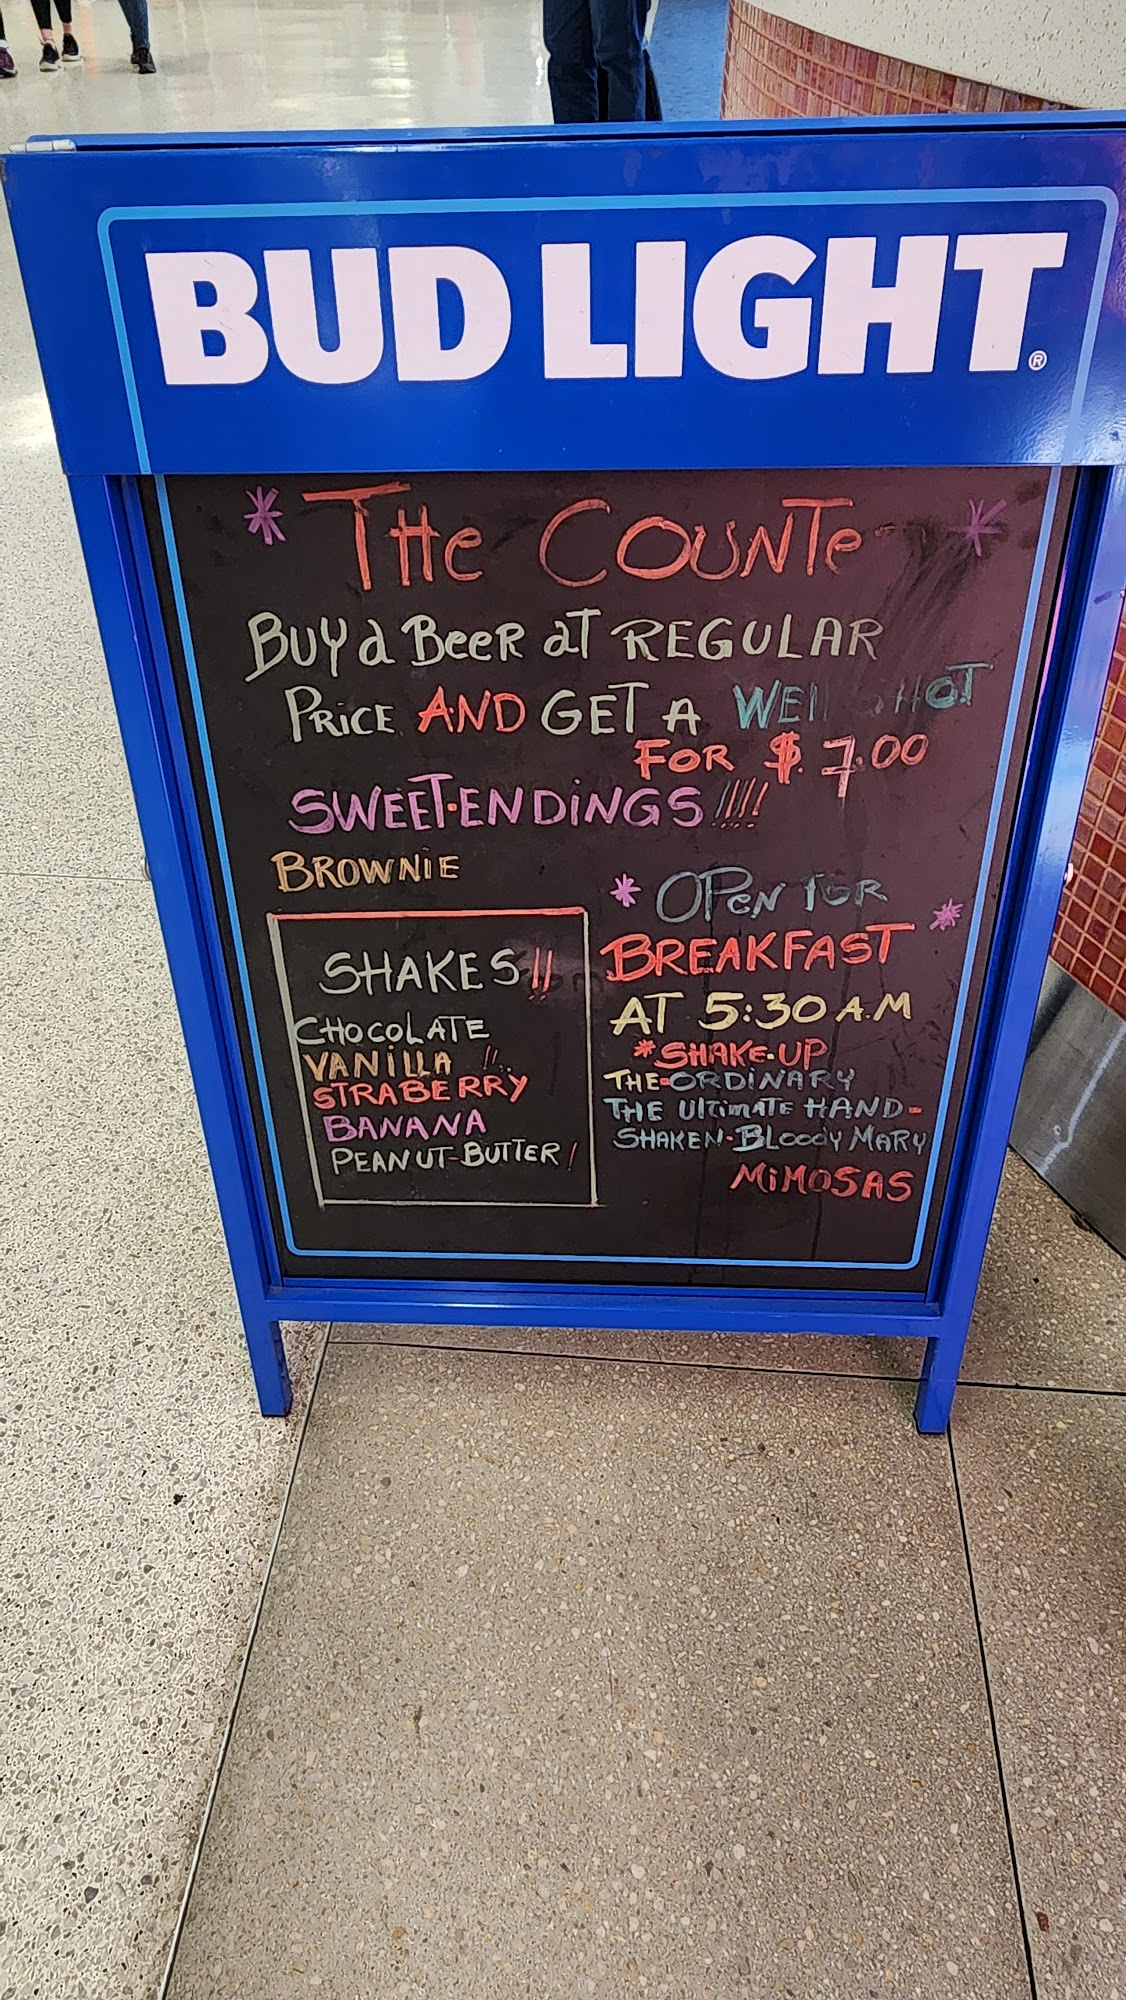 BUD LIGHT®
* THe COUNTe *
BUY a BeeR aT REGULAR
PRiCE AND GET A WEll SHOT
FOR $ 7.00
SWEET-ENDINGS !!!!!
BROWNiE
SHAKES !!
CHOCOLATE
VANiLLA !!
STRABERRY
BANANA
PEANUT-BUTTER!
* OPeN FOR *
BREAKFAST
AT 5:30 A.M
*SHAKE-UP
THE-ORDINARY
THE UlTimATE HAND-
SHAKEN-BLOODY MARY
MiMOSAS